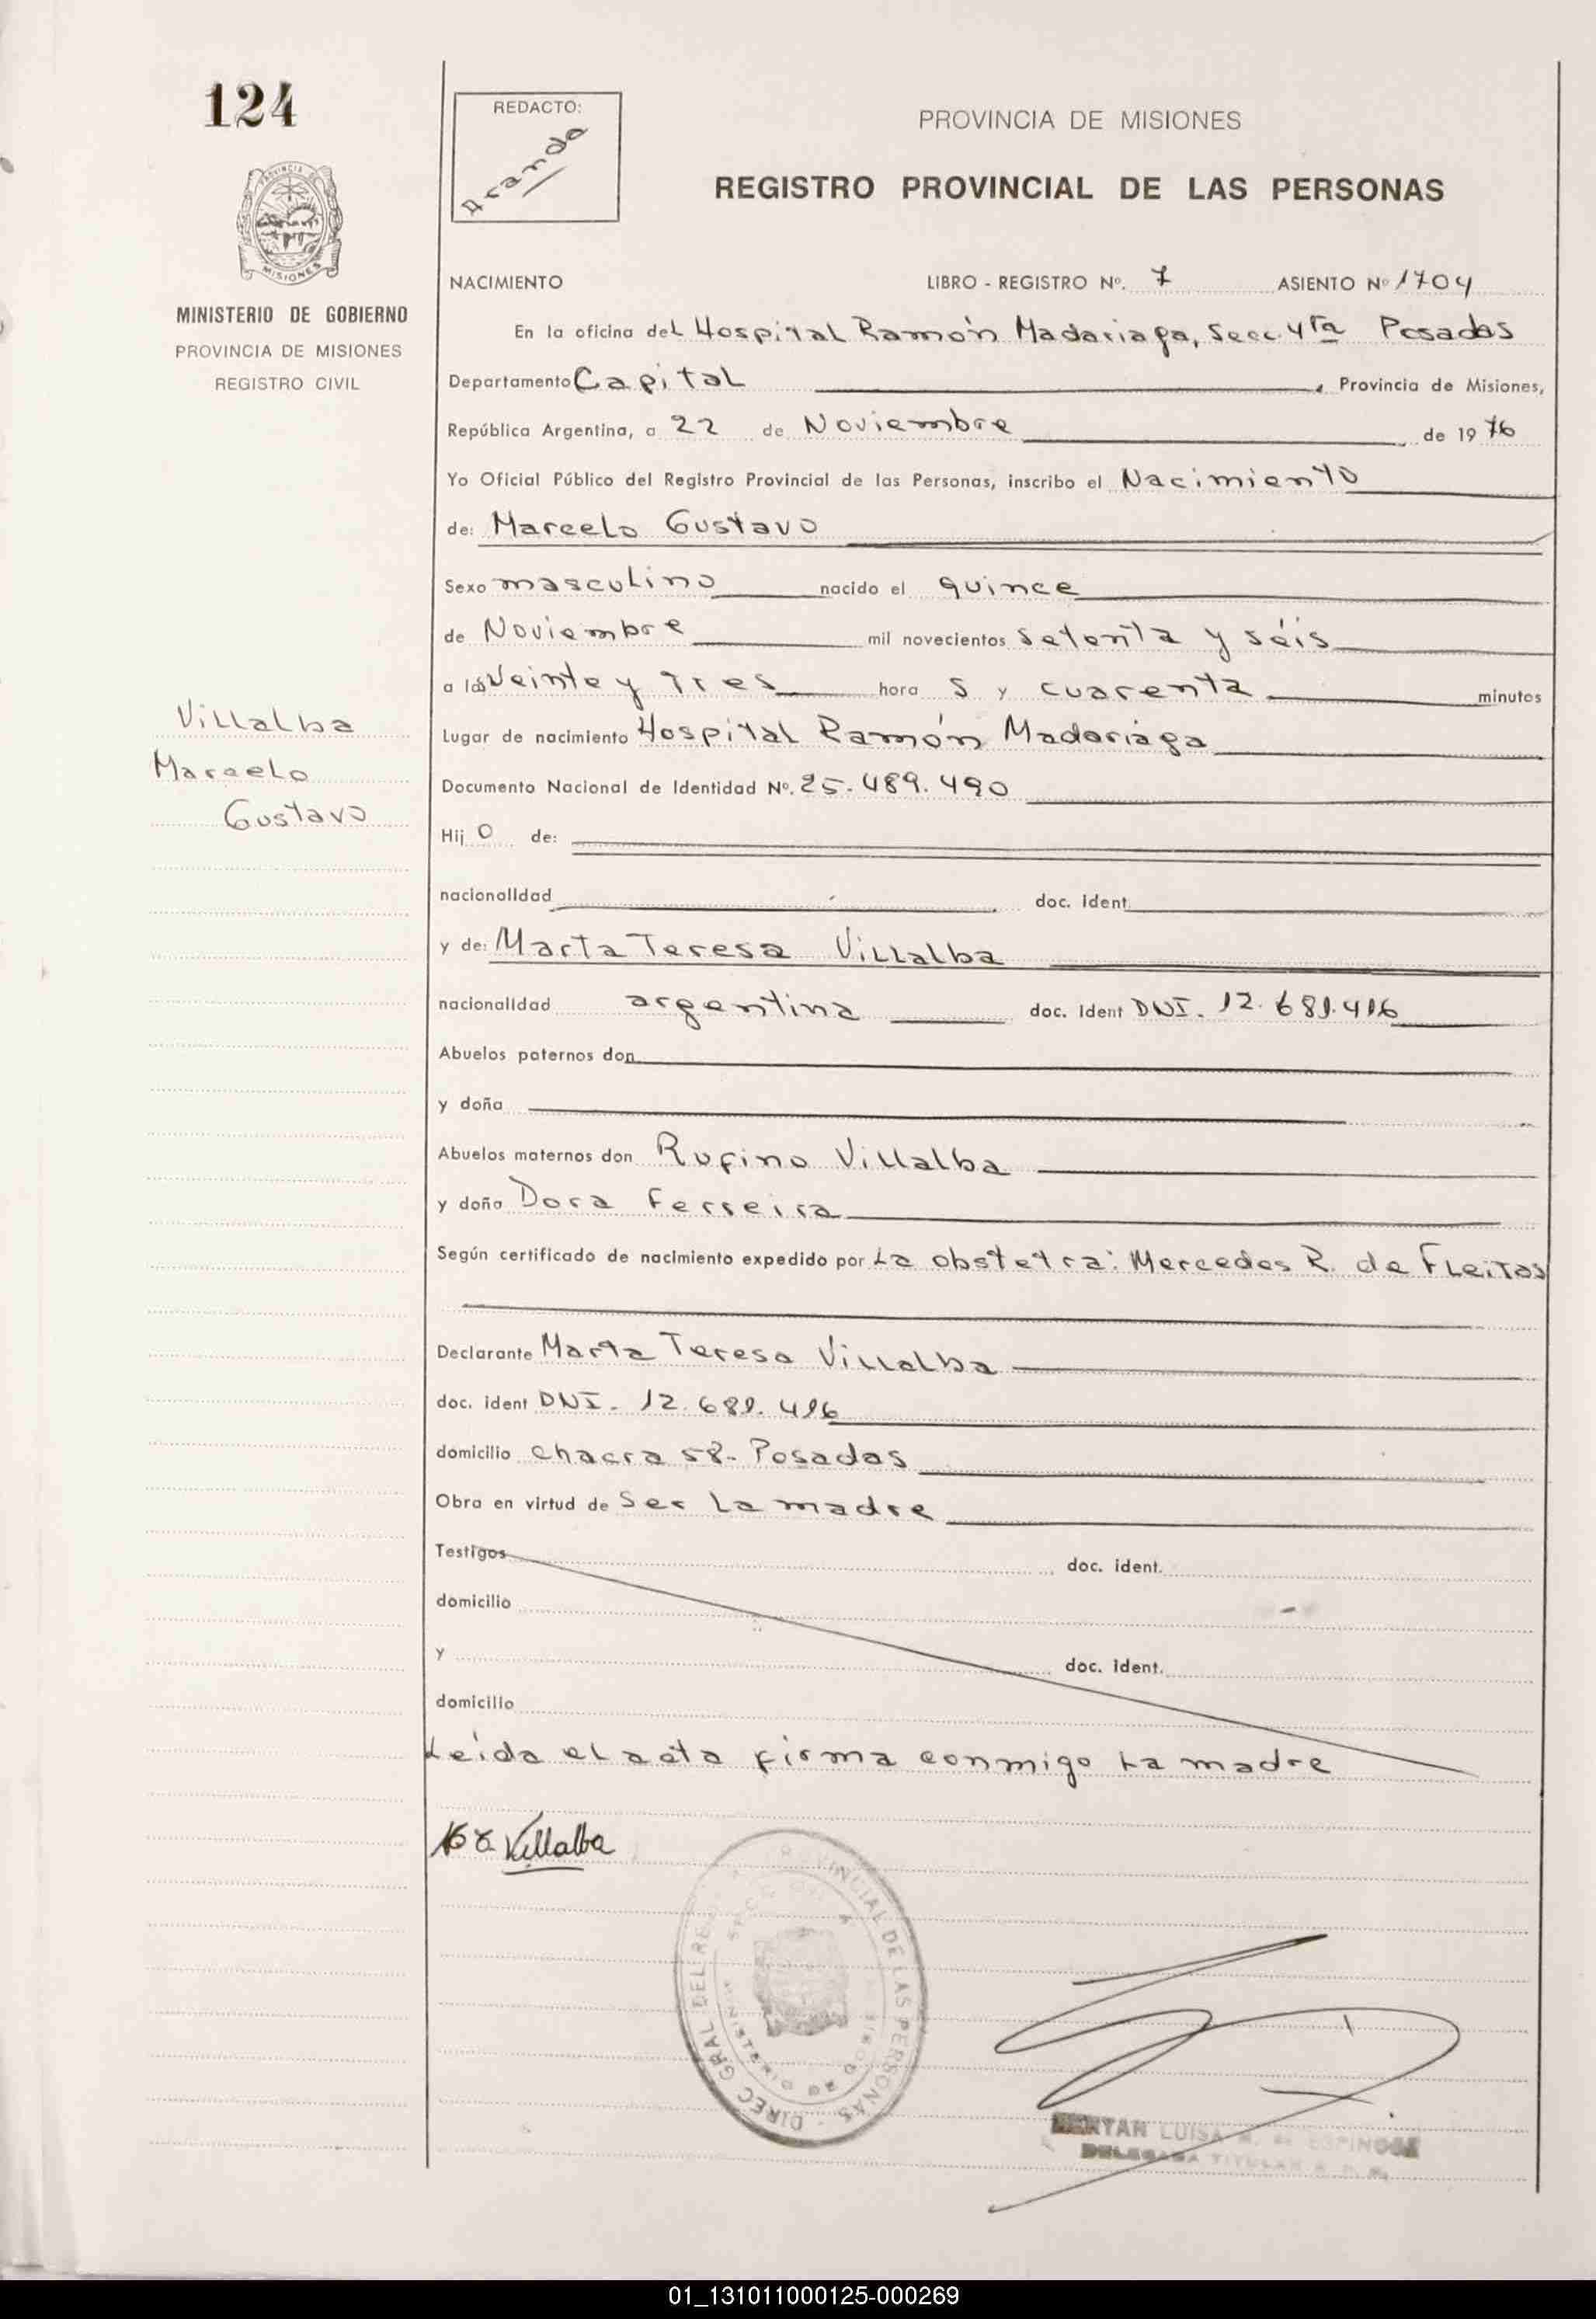 124
REDACTO:
Aranda
PROVINCIA DE MISIONES
REGISTRO PROVINCIAL DE LAS PERSONAS
PROVINCIA DE
MISIONES
MINISTERIO DE GOBIERNO
PROVINCIA DE MISIONES
REGISTRO CIVIL
NACIMIENTO LIBRO - REGISTRO Nº. 7 ASIENTO Nº 1704
En la oficina del Hospital Ramón Madariaga, Secc. 4ta Posadas
Departamento Capital, Provincia de Misiones,
República Argentina, a 22 de Noviembre de 1976
Yo Oficial Público del Registro Provincial de las Personas, inscribo el Nacimiento
de: Marcelo Gustavo
Sexo masculino nacido el quince
de Noviembre mil novecientos setenta y séis
a las veinte y tres hora s y cuarenta minutos
Villalba
Marcelo
Gustavo
Lugar de nacimiento Hospital Ramón Madariaga
Documento Nacional de Identidad Nº. 25.489.490
Hij o de:
nacionalidad doc. ident.
y de: Marta Teresa Villalba
nacionalidad argentina doc. ident DNI. 12.
Abuelos paternos don
y doña
Abuelos maternos don Rufino Villalba
y doña Dora Ferreira
Según certificado de nacimiento expedido por La obstetra: Mercedes R. de Fleitas
Declarante Marta Teresa Villalba
doc. ident DNI. 12.
domicilio chacra 58- Posadas
Obra en virtud de ser la madre
Testigos doc. ident.
domicilio
y doc. ident.
domicilio
Leída el acta firma conmigo la madre
Villalba
DIREC GRAL DEL REG PROVINCIAL DE LAS PERSONAS
MINISTERIO DE GOBIERNO
LUISA ESPINOSA
DELEGADA TITULAR
01_131011000125-000269